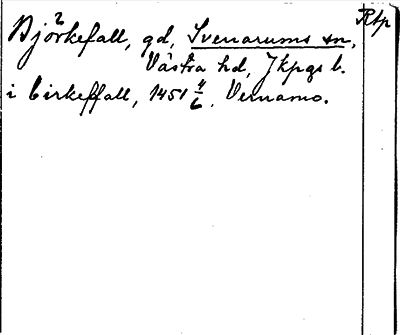 Björkefall, gd, Svenarums sn, Rtp
Västra hd, Jkpgs l.
i birkeffall, 1451 4/6. Vernamo.